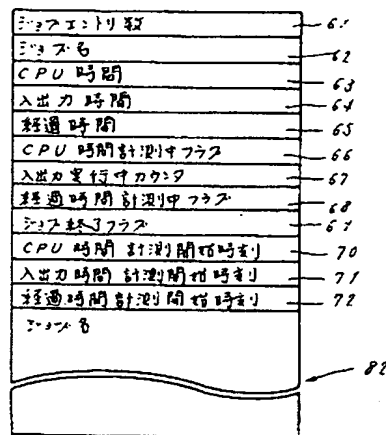 ジョブエントリ数 61
ジョブ名 62
CPU 時間 63
入出力時間 64
経過時間 65
CPU 時間計測中フラグ 66
入出力実行中カウンタ 67
経過時間計測中フラグ 68
ジョブ終了フラグ 69
CPU 時間 計測開始時刻 70
入出力時間 計測開始時刻 71
経過時間計測開始時刻 72
ジョブ名
82